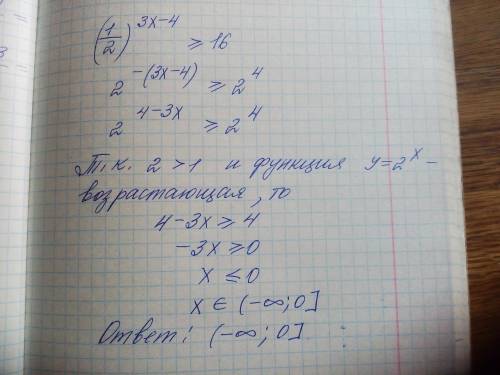 (1/2)^(3x-4) ≥ 16
2^(-(3x-4)) ≥ 2^4
2^(4-3x) ≥ 2^4
Т.к. 2 > 1 и функция y=2^x –
возрастающая, то
4-3x ≥ 4
-3x ≥ 0
x ≤ 0
x ∈ (-∞; 0]
Ответ: (-∞; 0]